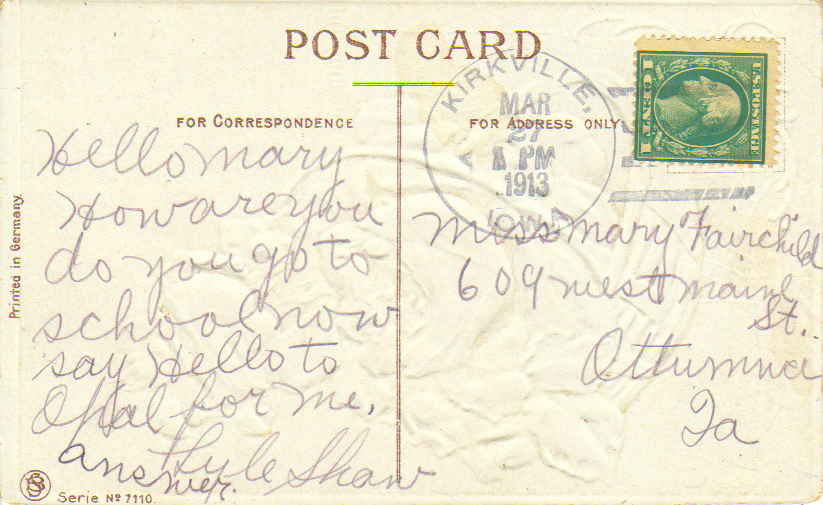 POST CARD
FOR CORRESPONDENCE
FOR ADDRESS ONLY
KIRKVILLE,
MAR
27
PM
1913
IOWA
U.S. POSTAGE
1 CENT 1
Hello mary
How are you
do you go to
school now
say Hello to
Opal for me,
answer.
Lyle Shaw
Miss Mary Fairchild
609 west main
St.
Ottumwa
Ia
Printed in Germany.
Serie No 7110.